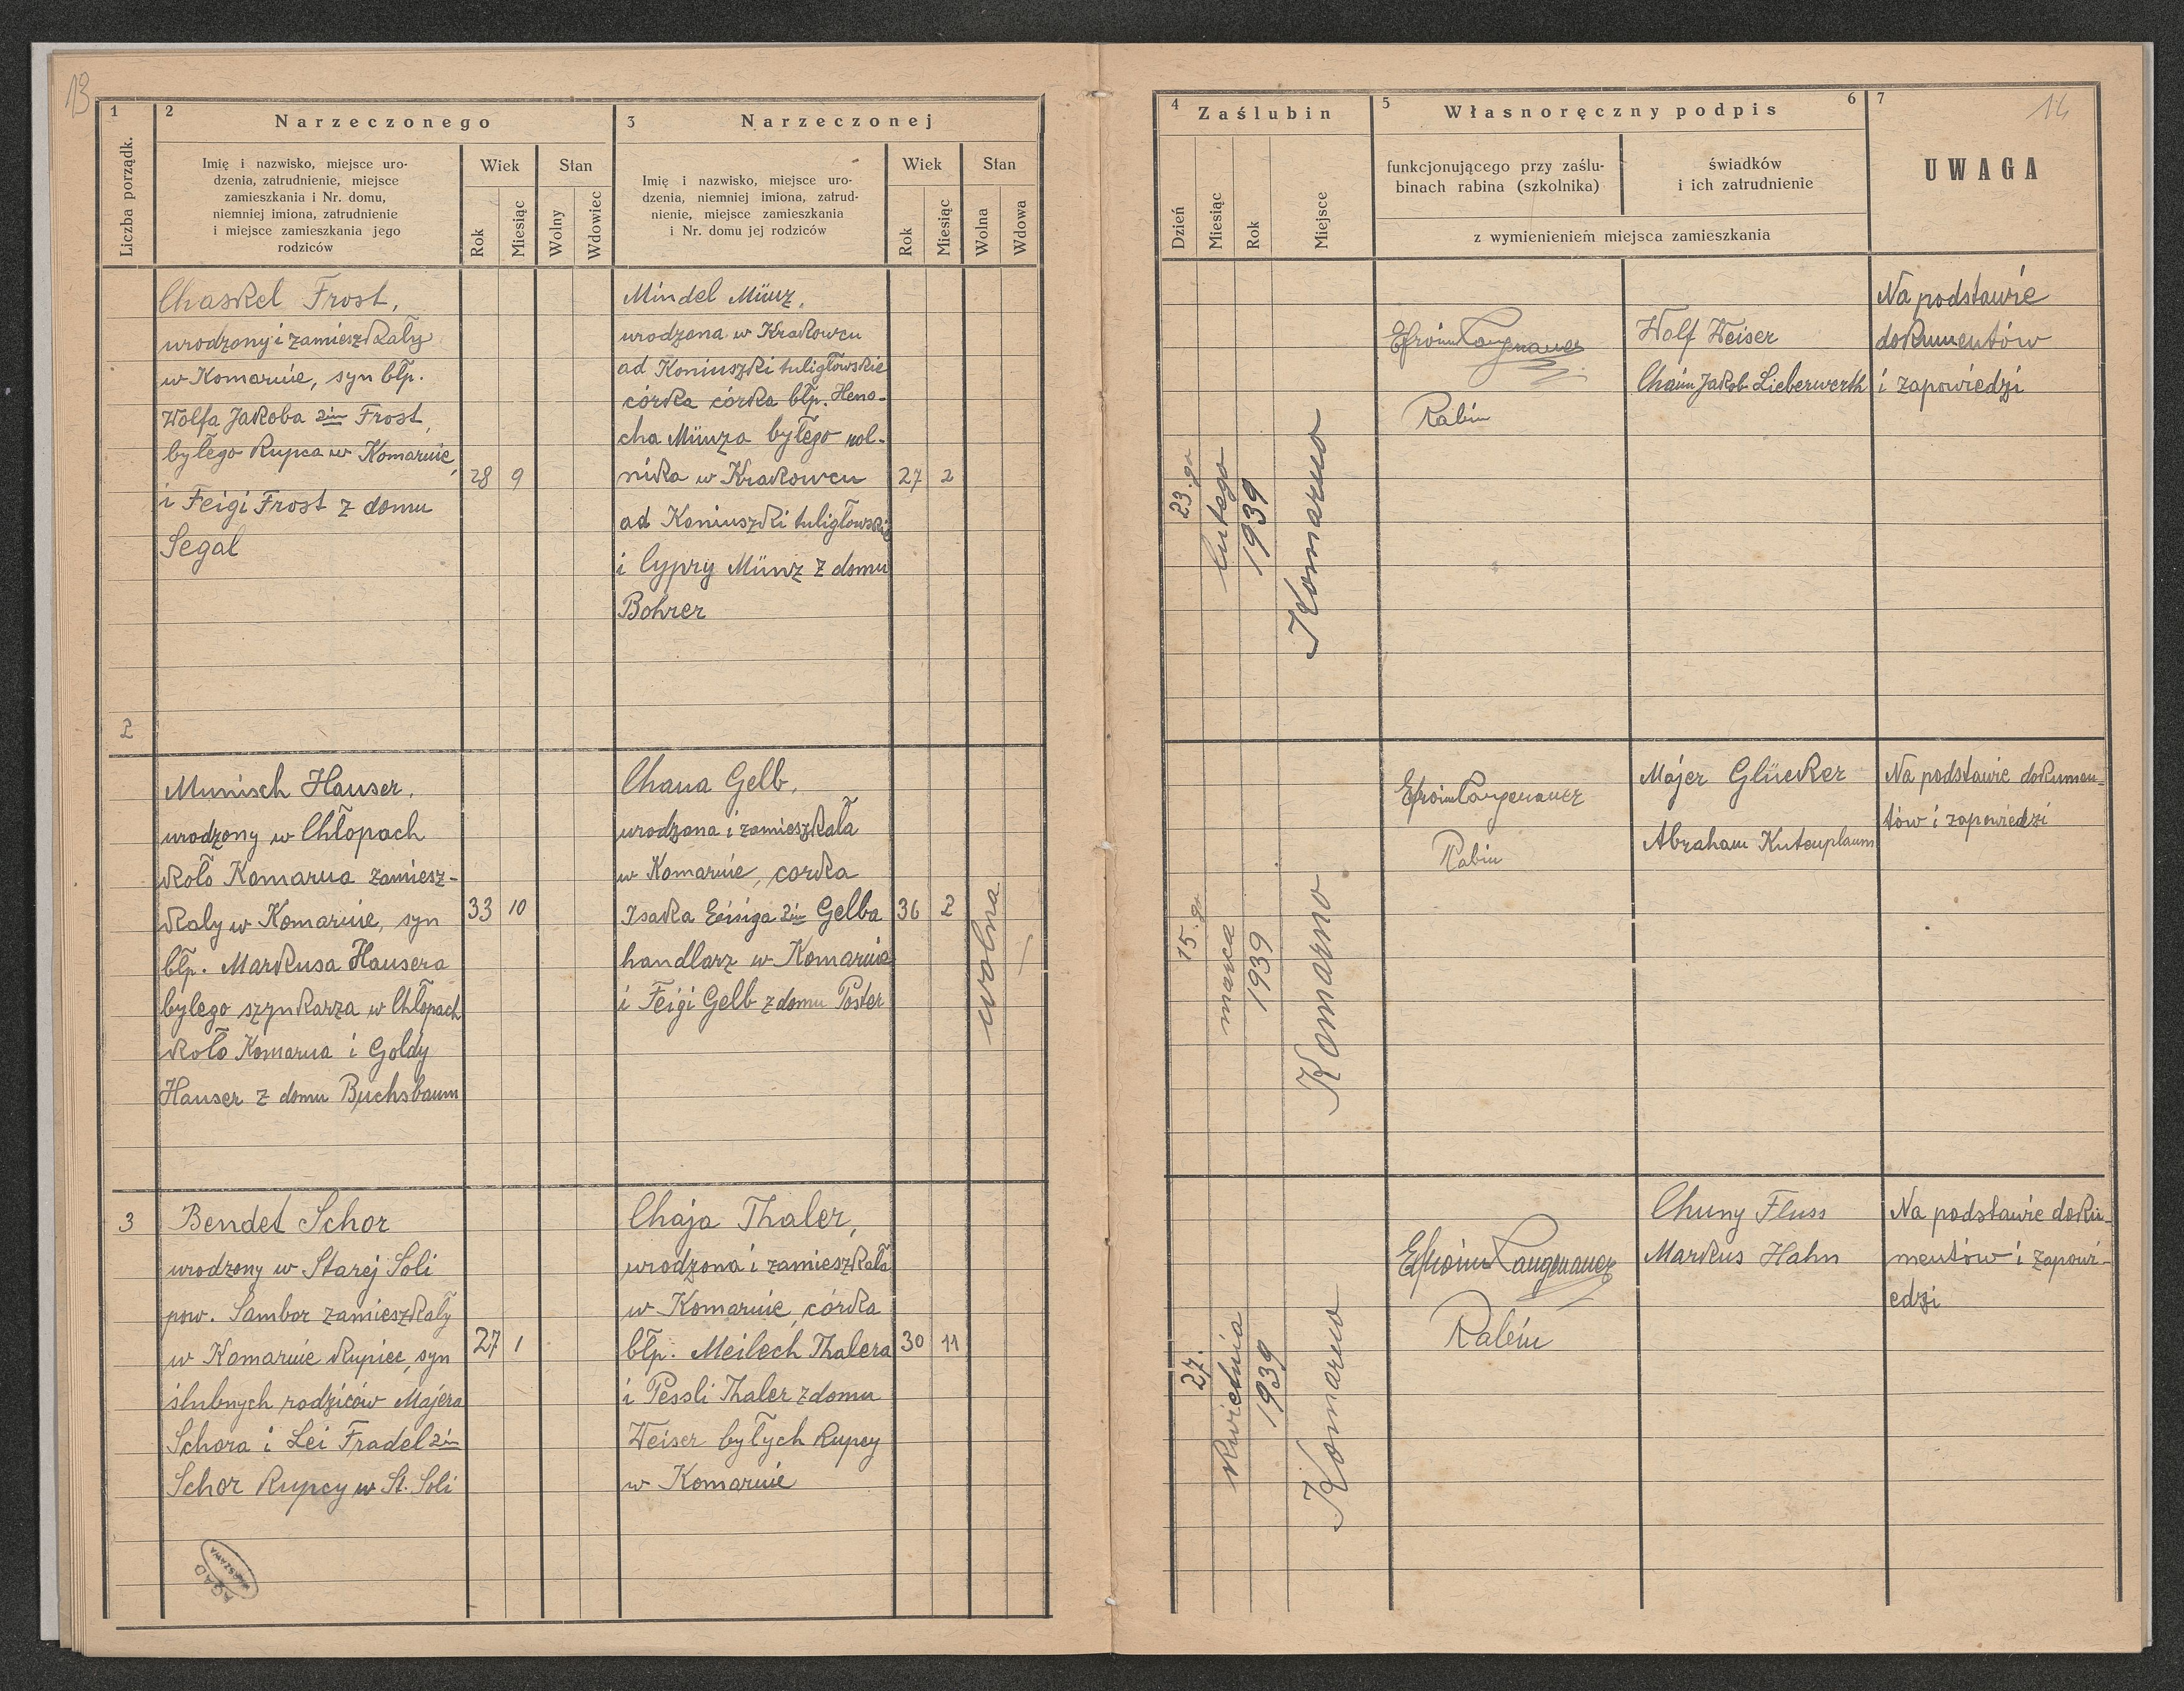 13
1
Liczba porządk.
2
Narzeczonego
Imię i nazwisko, miejsce uro-
dzenia, zatrudnienie, miejsce
zamieszkania i Nr. domu,
niemniej imiona, zatrudnienie
i miejsce zamieszkania jego
rodziców
Wiek
Rok
Miesiąc
Stan
Wolny
Wdowiec
3
Narzeczonej
Imię i nazwisko, miejsce uro-
dzenia, niemniej imiona, zatrud-
nienie, miejsce zamieszkania
i Nr. domu jej rodziców
Wiek
Rok
Miesiąc
Stan
Wolna
Wdowa
4
Zaślubin
Dzień
Miesiąc
Rok
Miejsce
5
Własnoręczny podpis
6
funkcjonującego przy zaślu-
binach rabina (szkolnika)
świadków
i ich zatrudnienie
z wymienieniem miejsca zamieszkania
7
14
UWAGA
Chaskel Frost,
urodzony i zamieszkały
w Komarnie, syn błp.
Wolfa Jakoba 2im Frost,
byłego kupca w Komarnie,
i Feigi Frost z domu
Segal
28 9
Mindel Münz,
urodzona w Krakowcu
ad Koniuszki tuligłowskie
córka córka błp. Heno-
cha Münza byłego rol-
nika w Krakowcu
ad Koniuszki tuligłowskie
i Cypry Münz z domu
Bohrer
27 2
23.go
lutego
1939
Komarno
Efroim Langenauer
Rabin
Wolf Weiser
Chaim Jakob Lieberwerth
Na podstawie
dokumentów
i zapowiedzi
2
Munisch Hauser,
urodzony w Chłopach
koło Komarna zamiesz-
kaly w Komarnie, syn
błp. Markusa Hausera
bylego szynkarza w Chłopach
koło Komarna i Goldy
Hauser z domu Buchsbaum
33 10
Chana Gelb,
urodzona i zamieszkała
w Komarnie, corka
Isaka Eisiga 2im Gelba
handlarz w Komarnie
i Feigi Gelb z domu Poster
36 2
wolna
15.go
marca
1939
Komarno
Efroim Langenauer
Rabin
Majer Glücker
Abraham Kutenplaum
Na podstawie dokumen-
tów i zapowiedzi
3
Bendet Schor
urodzony w Starej Soli
pow. Sambor zamieszkały
w Komarnie kupiec, syn
ślubnych rodziców Majera
Schora i Lei Fradel 2im
Schor kupcy w St. Soli
27 1
Chaja Thaler,
urodzona i zamieszkała
w Komarnie, córka
błp. Meilech Thalera
i Pessli Thaler z domu
Weiser byłych kupcy
w Komarnie
30 11
27.
kwietnia
1939
Komarno
Efroim Langenauer
Rabin
Chuny Fluss
Markus Hahn
Na podstawie doku-
mentów i zapowi-
edzi
AGAD
WARSZAWA